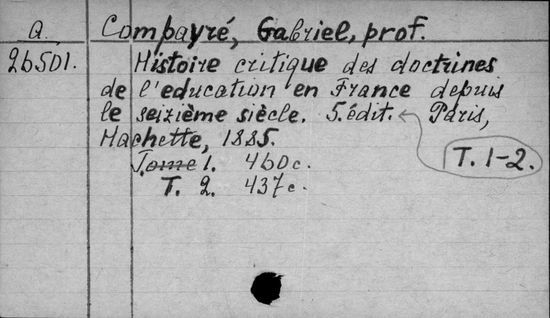 A. Compayré, Gabriel, prof.
26501. Histoire critique des doctrines
de l'education en France depuis
le seizième siècle. 5. édit. Paris,
Hachette, 1885.
T. 1-2.
Tome 1. 460 c.
T. 2. 437 c.